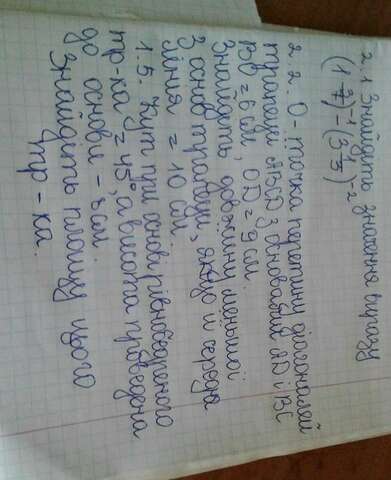 2.1 Знайдіть значення виразу
(1 2/7)⁻¹ - (3 1/3)⁻²
2.2. О - точка перетину діагоналей
трапеції ABCD з основами AD і BC
BO = 6 см, OD = 9 см.
Знайдіть довжини меньшої
з основ трапеції, якщо її середня
лінія = 10 см.
1.5. Кут при основі рівнобедреного
тр-ка = 45°, а висота проведена
до основи - 8 см.
Знайдіть площу цього
тр-ка.